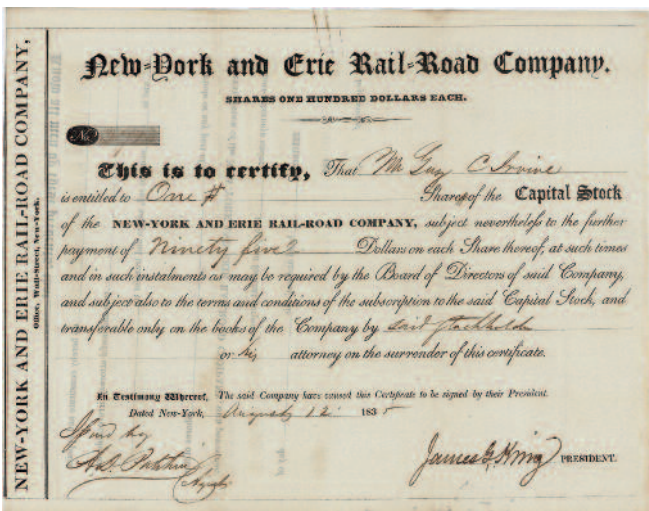 NEW-YORK AND ERIE RAIL-ROAD COMPANY,
Office, Wall-Street, New-York.
New-York and Erie Rail-Road Company.
SHARES ONE HUNDRED DOLLARS EACH.
No
This is to certify, That Mr Guy C Irvine
is entitled to One Shares of the Capital Stock
of the NEW-YORK AND ERIE RAIL-ROAD COMPANY, subject nevertheless to the further
payment of Ninety five Dollars on each Share thereof, at such times
and in such instalments as may be required by the Board of Directors of said Company,
and subject also to the terms and conditions of the subscription to the said Capital Stock, and
transferable only on the books of the Company by said stockholder
or his attorney on the surrender of this certificate.
In Testimony Whereof, The said Company have caused this Certificate to be signed by their President.
Dated New-York, August 12 1835
James G King PRESIDENT.